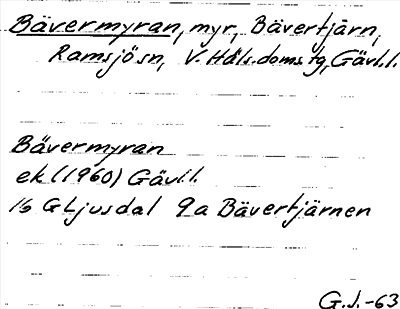 Bävermyran, myr, Bävertjärn,
Ramsjösn, V. Häls.doms.tg, Gävl.l.
Bävermyran
ek (1960) Gävl.l.
16 G Ljusdal 9a Bävertjärnen
G.J.-63